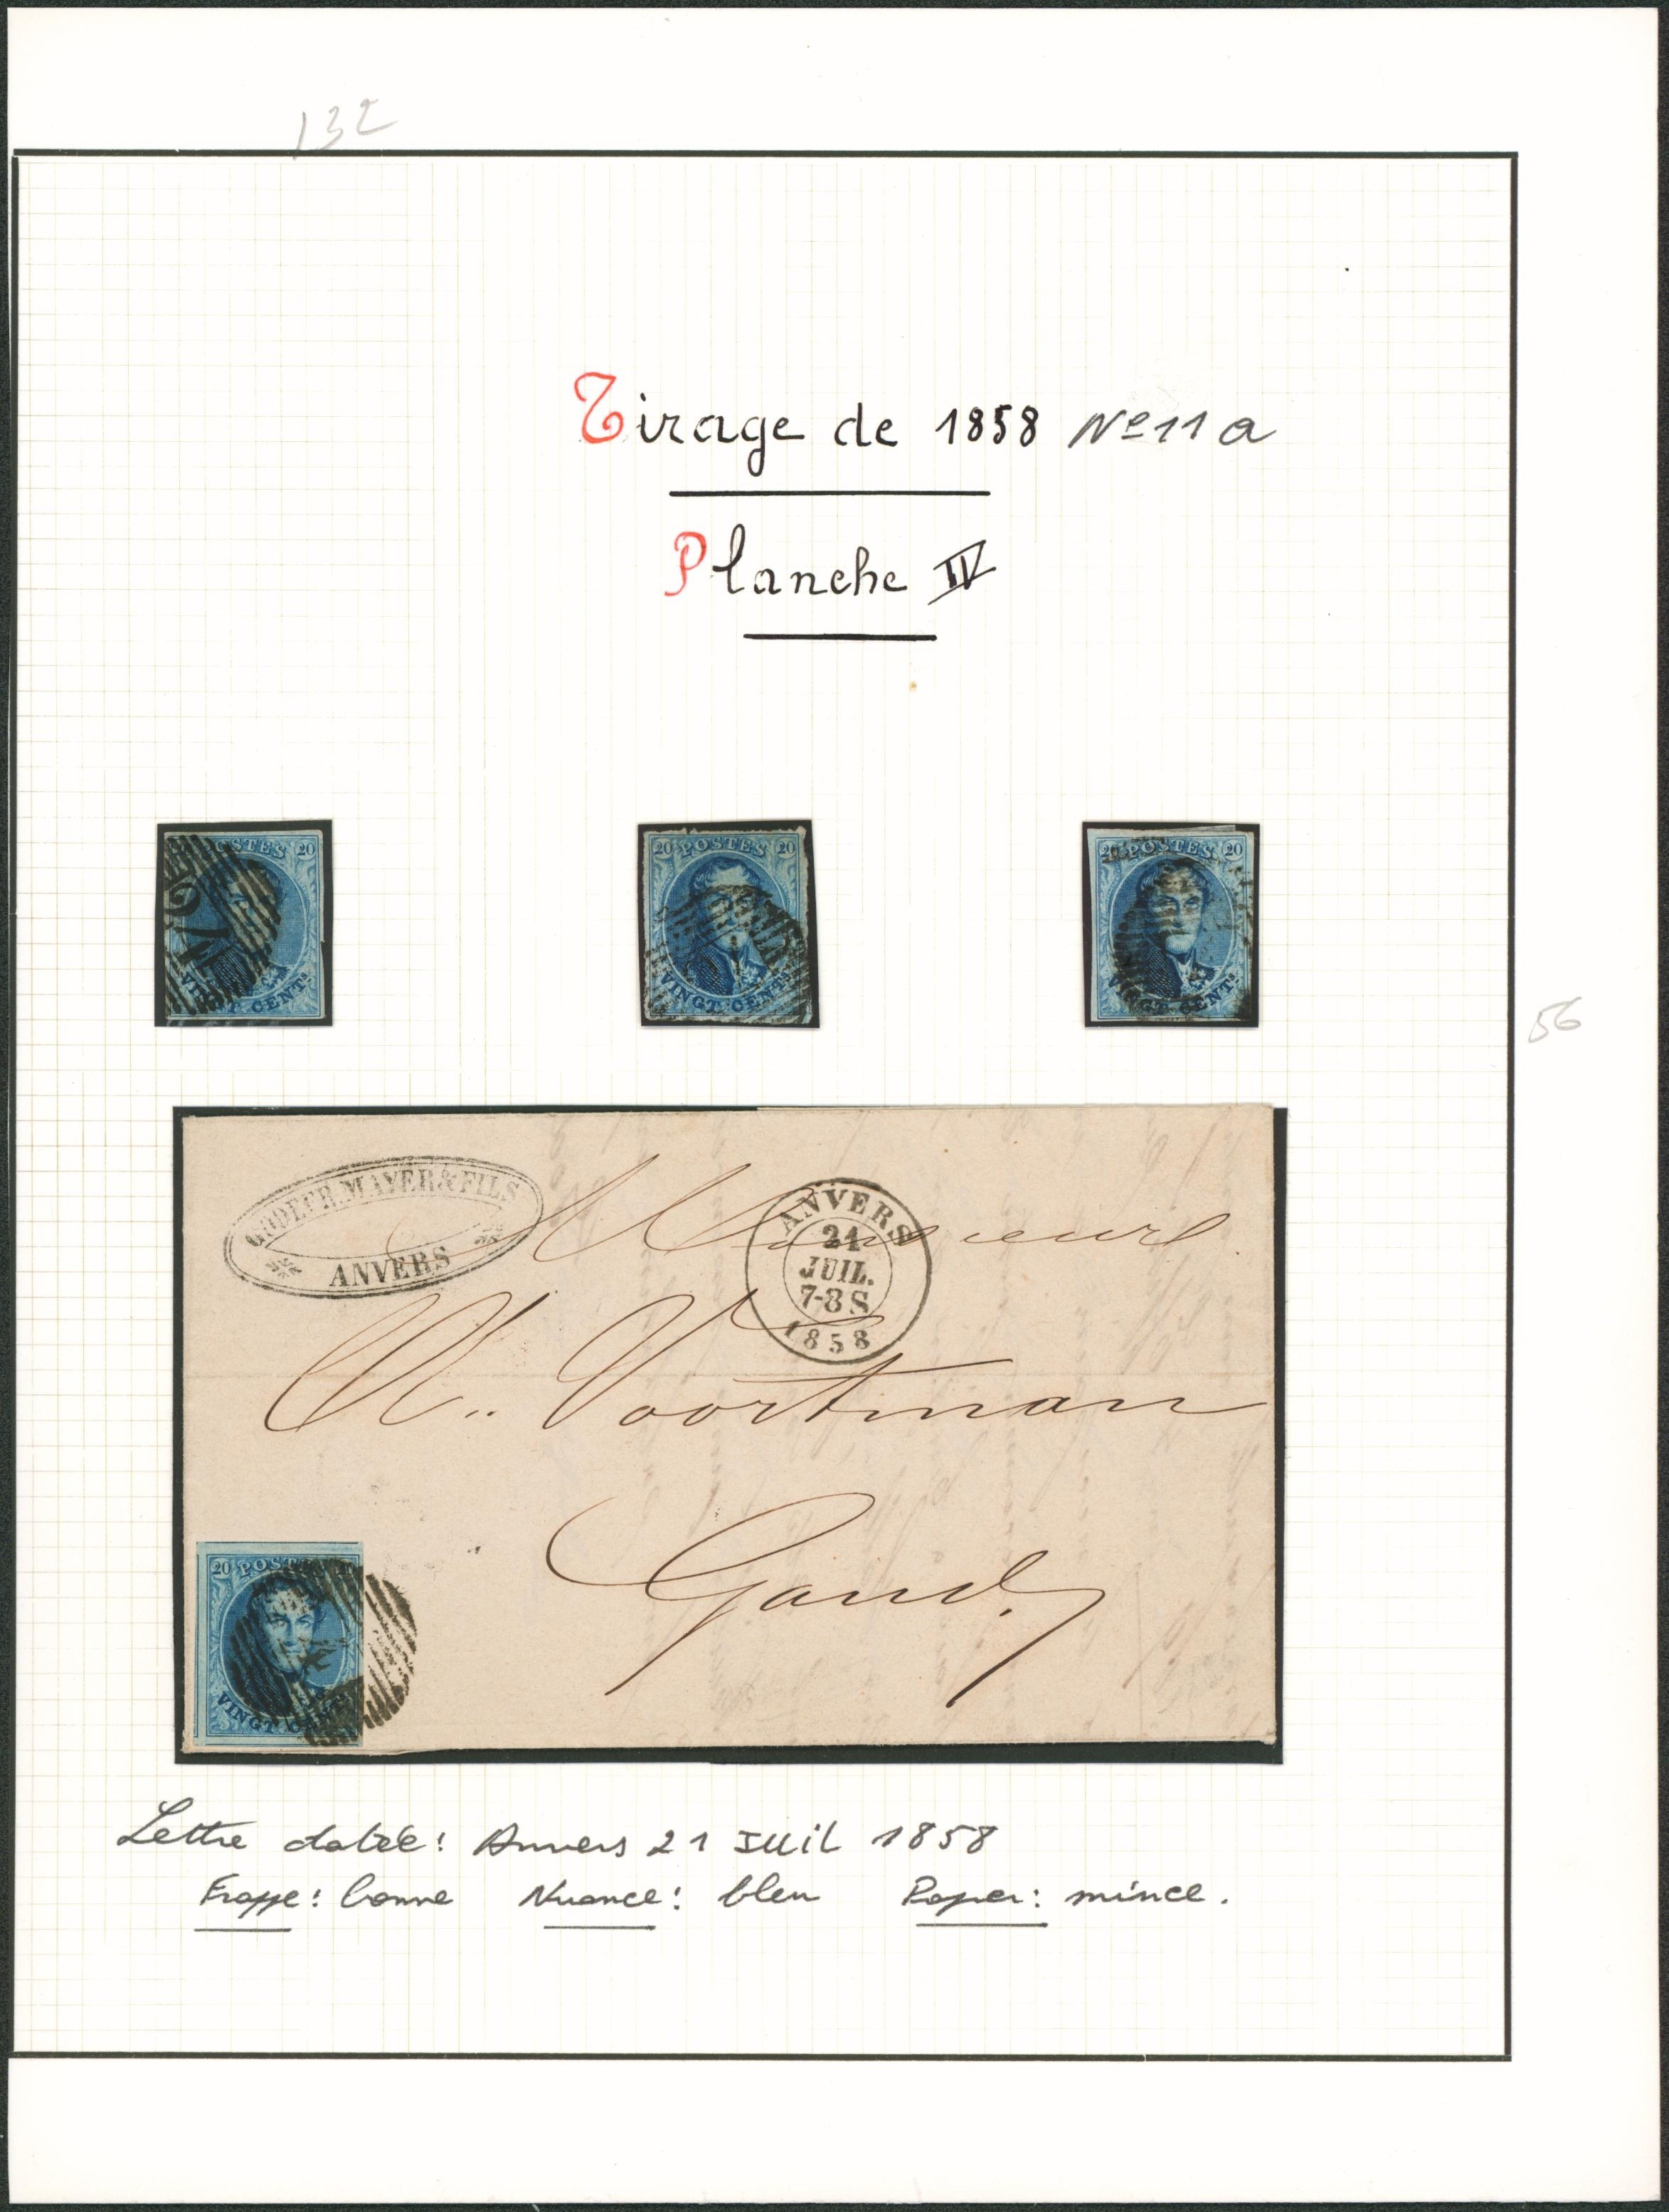 132
Tirage de 1858 Nº 11 a
Planche IV
STES 20
CENTS
20 POSTES 20
VINGT CENTS
20 POSTES 20
VINGT CENTS
56
MAYER & FILS
ANVERS
ANVERS
21
JUIL.
7-8 S
1858
Monsieur
Voortman
Gand
20 POST
VINGT CENT
Lettre datée: Anvers 21 Juil 1858
Frappe: bonne Nuance: bleu Papier: mince.